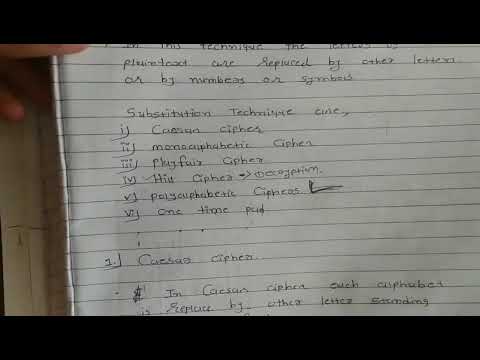 In this technique the letters of
plaintext are replaced by other letters
or by numbers or symbols
Substitution Technique are,
i) Caesar cipher
ii) monoalphabetic Cipher
iii) Playfair Cipher
iv) Hill Cipher → Decryption.
v) polyalphabetic Ciphers
vi) One time pad
1.] Caesar Cipher.
In Caesar cipher each alphabet
is replace by other letter standing